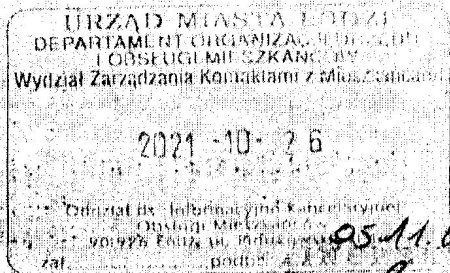 URZĄD MIASTA ŁODZI
DEPARTAMENT ORGANIZACJI URZĘDU
I OBSŁUGI MIESZKAŃCÓW
Wydział Zarządzania Kontaktami z Mieszkańcami
2021 -10- 26
Oddział ds. Informacyjno Kancelaryjnej
Obsługi Mieszkańców
90-926 Łódź, ul. Piotrkowska
05.11.
zał. podpis